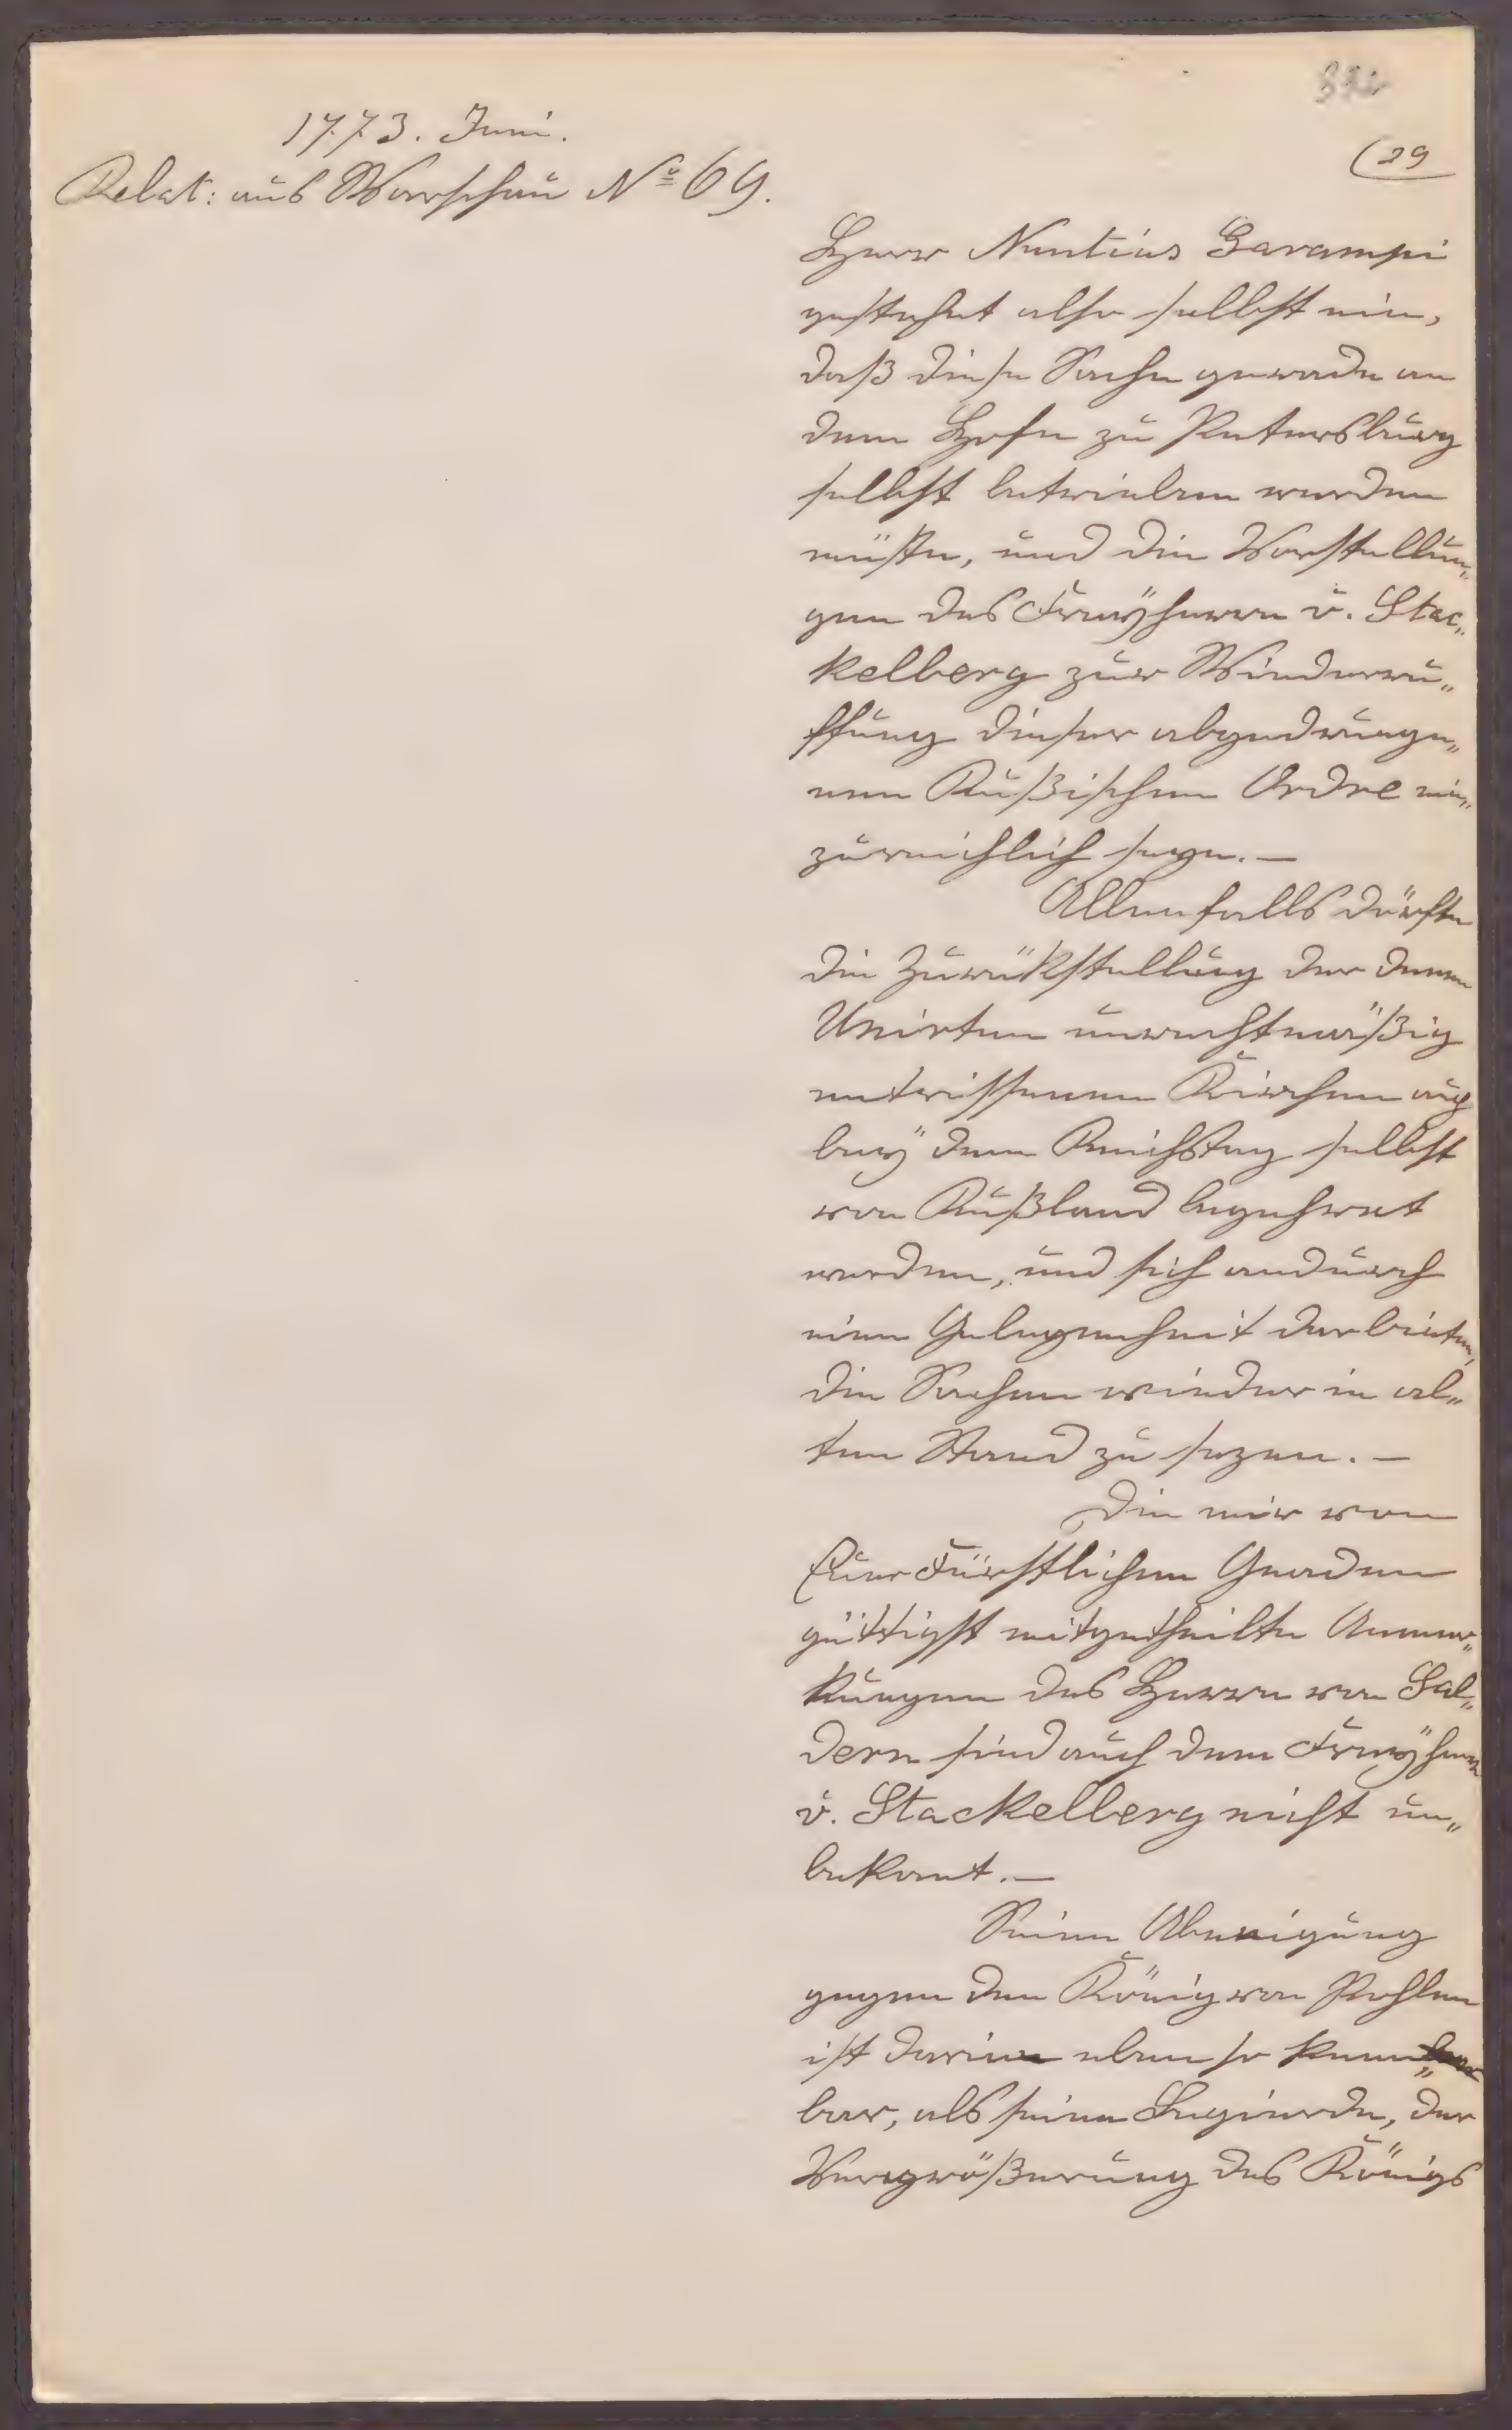 1773. Juni.
Relat: aus Warschau No 69.
(29
Herr Nuntius Garampi
gestehet also selbst ein,
daß diese Sache gerade an
dem Hofe zu Petersburg
selbst betrieben werden
müste, und die Vorstellun„
gen des Freÿherrn v. Stac„
kelberg zur Wiederru„
ffung dieser abgedrunge„
nen Rußischen Ordre un„
zureichlich seyen. —
Allenfalls dörfte
die Zurükstellung der denen
Unirten unrechtmäßig
entrissenen Kirchen auch
beÿ dem Reichstag selbst
von Rußland begehret
werden, und sich andurch
eine Gelegenheit darbieten,
die Sachen wieder in al„
ten Stand zu sezen. —
Die mir von
Euer Fürstlichen Gnaden
güttigst mitgetheilte Anmer„
kungen des Herrn von Sal„
dern sind auch dem Freÿherrn
v. Stackelberg nicht un„
bekant. —
Seine Abneigung
gegen den König von Pohlen
ist darinn eben so kenn„
bar, als seine Begierde, der
Vergrößerung des Königs